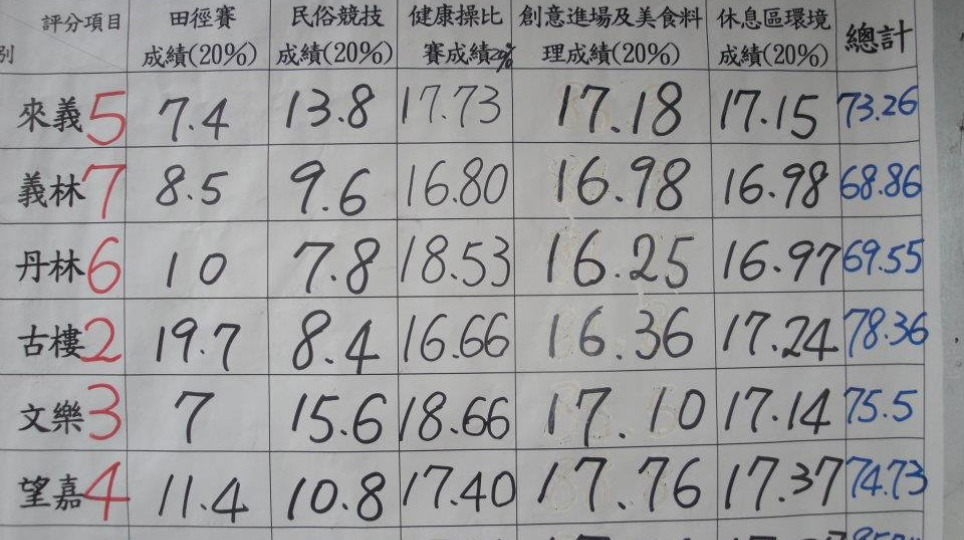 評分項目 田徑賽 民俗競技 健康操比 創意進場及美食料 休息區環境 總計
別 成績(20%) 成績(20%) 賽成績20% 理成績(20%) 成績(20%)
來義 5 7.4 13.8 17.73 17.18 17.15 73.26
義林 7 8.5 9.6 16.80 16.98 16.98 68.86
丹林 6 10 7.8 18.53 16.25 16.97 69.55
古樓 2 19.7 8.4 16.66 16.36 17.24 78.36
文樂 3 7 15.6 18.66 17.10 17.14 75.5
望嘉 4 11.4 10.8 17.40 17.76 17.37 74.73